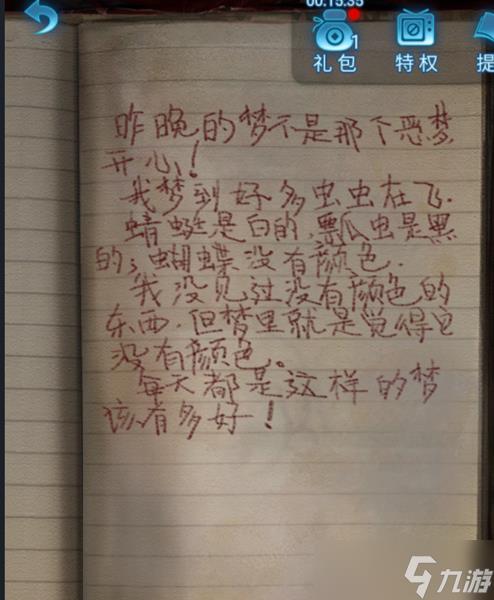 00:15:35
1
礼包
特权
提
昨晚的梦不是那个恶梦
开心!
我梦到好多虫虫在飞.
蜻蜓是白的,瓢虫是黑
的;蝴蝶没有颜色.
我没见过没有颜色的
东西.但梦里就是觉得它
没有颜色。
每天都是这样的梦
该有多好!
九游